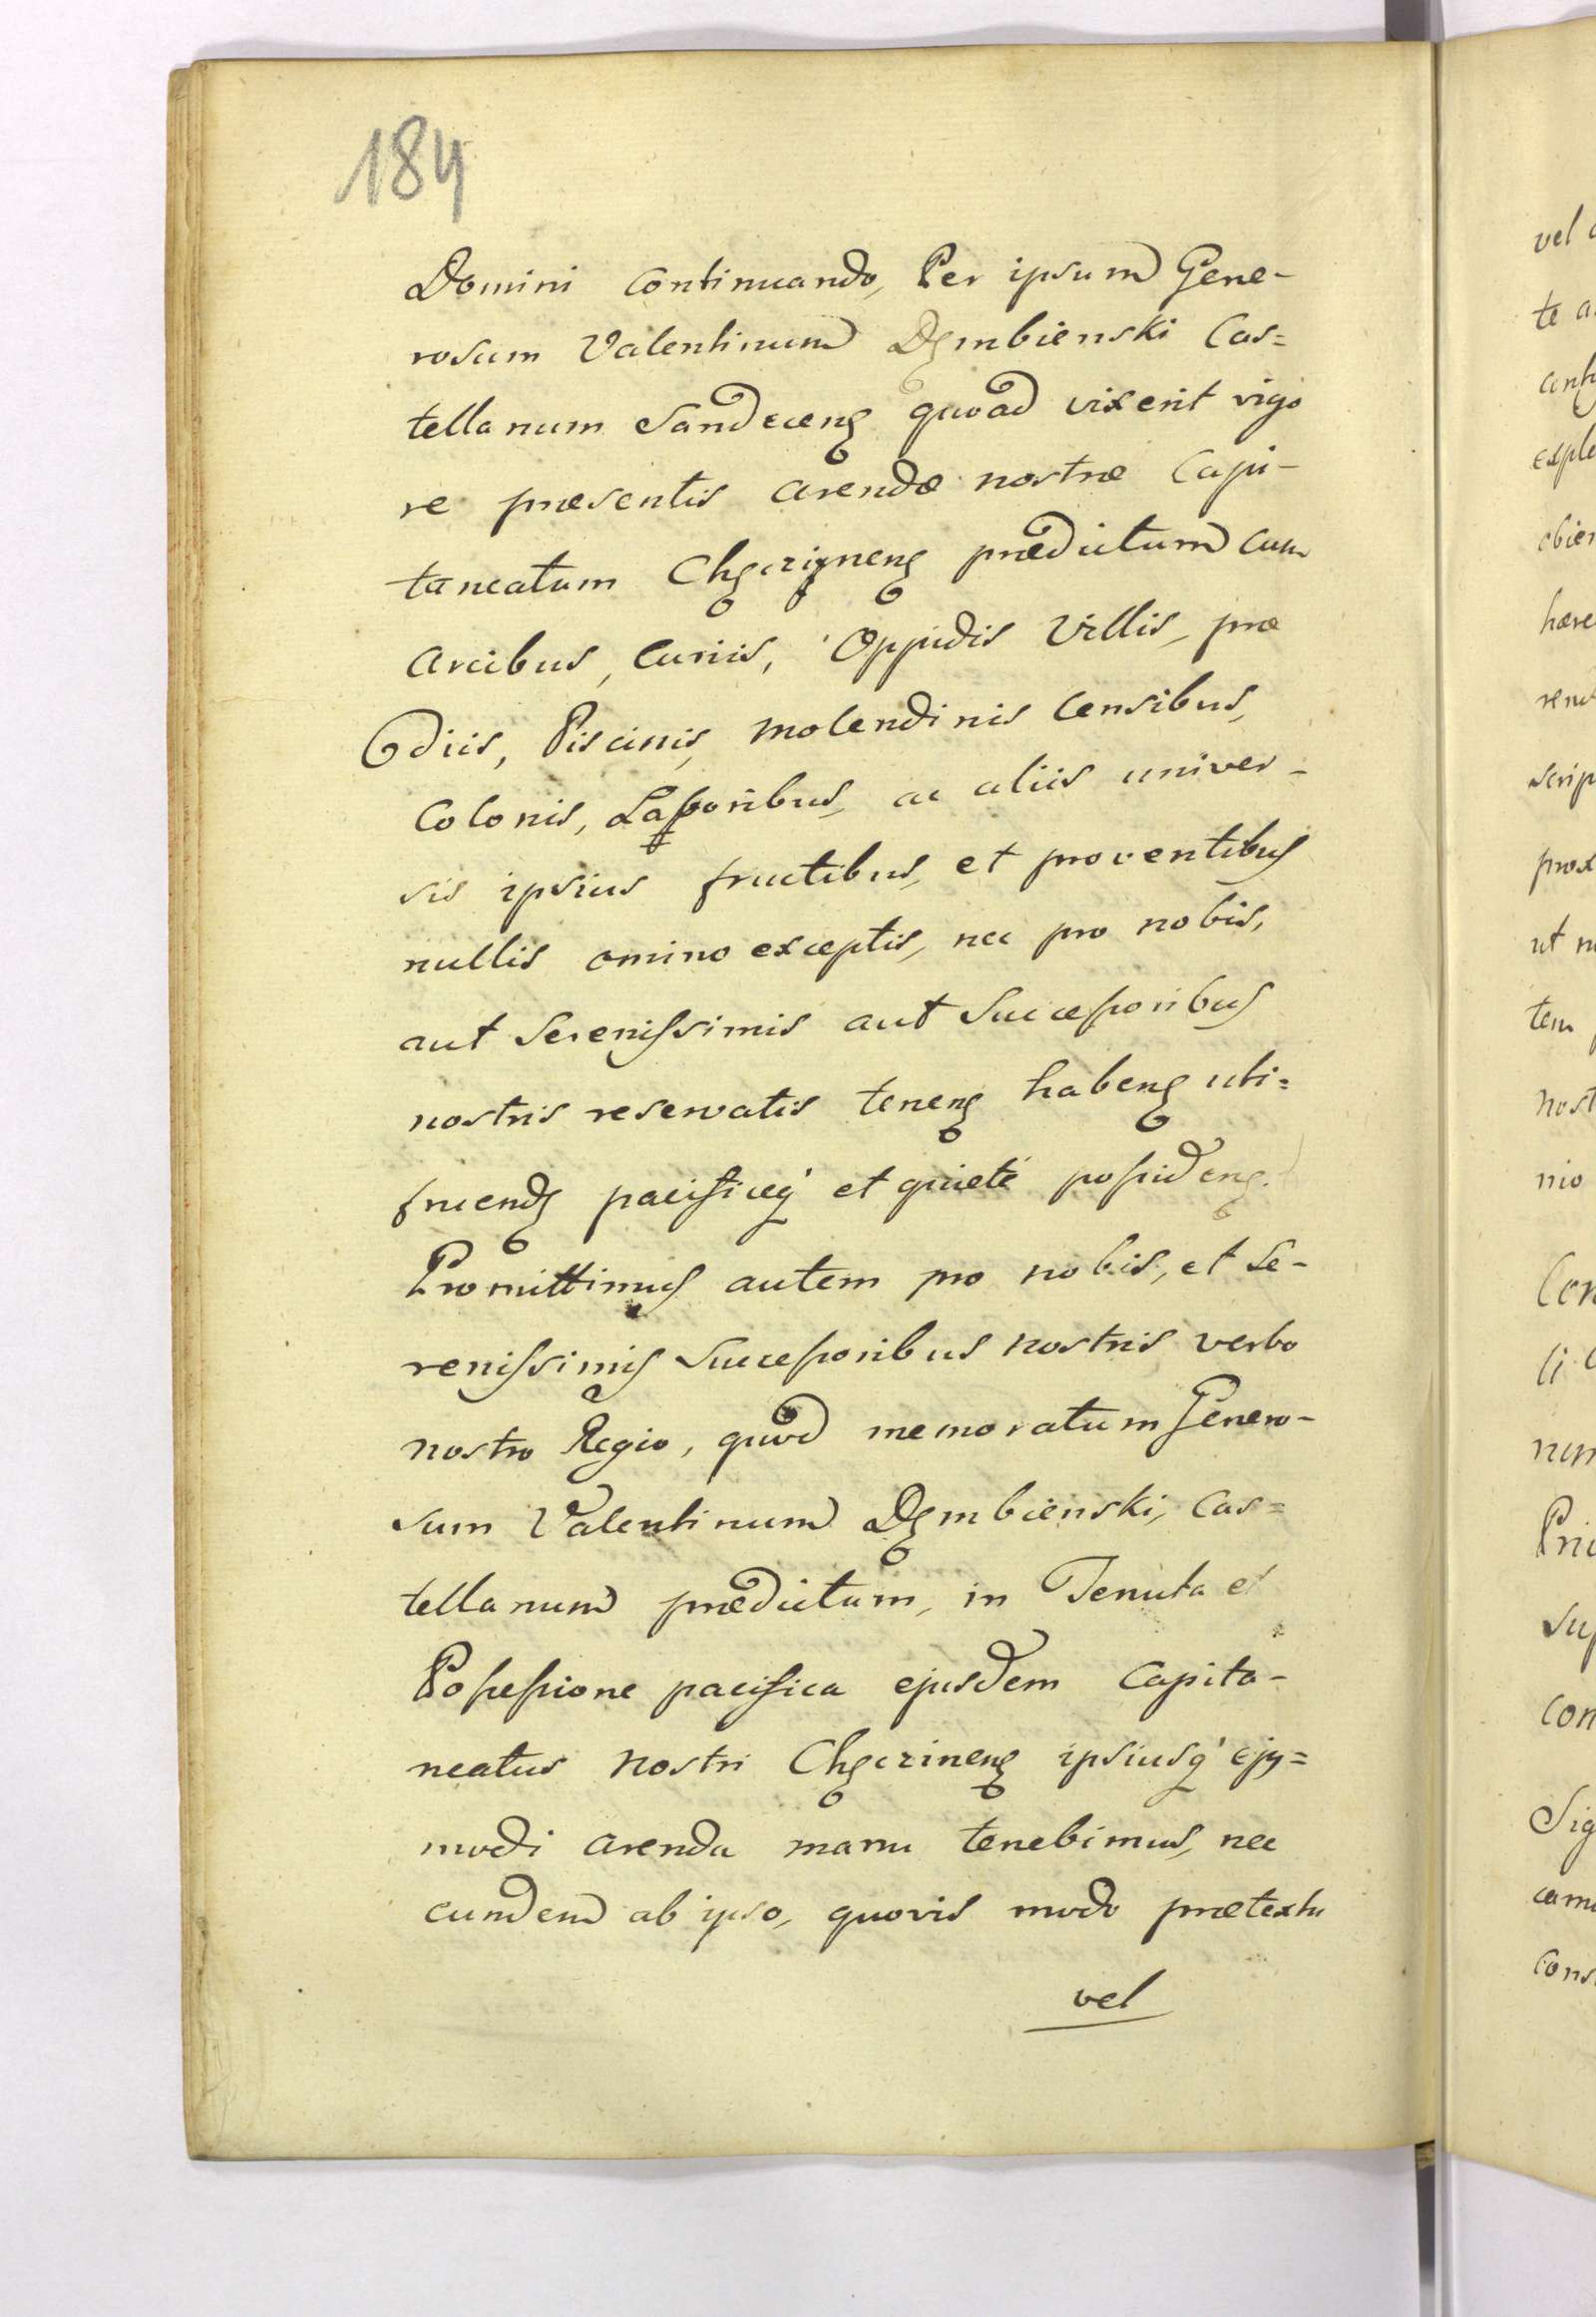 184
Domini continuando, Per ipsum Gene-
rosum Valentinum Dęmbienski Cas=
tellanum Sandecenę quoad vixerit vigo
re præsentis arendæ nostræ Capi-
taneatum Chęczignenę prædictum cum
arcibus, curiis, Oppidis Villis, præ
diis, Piscinis, molendinis censibus,
Colonis, Laboribus, ac aliis univer-
sis ipsius fructibus, et proventibus
nullis omino exceptis, nec pro nobis,
aut Sereniſsimis aut Succeſsoribus
nostris reservatis tenenę habenę uti=
fruendę pacificeq et quietè poſsidenę.
Promittimus autem pro nobis, et Se-
reniſsimis Succeſsoribus nostris verbo
nostro Regio, quod memoratum Genero-
sum Valentinum Dęmbienski, Cas=
tellanum prædictum, in Tenuta et
Poſseſsione pacifica ejusdem Capita-
neatus nostri Chęczinenę ipsiusq ejus=
modi arenda manu tenebimus, nec
eundem ab ipso, quovis modo prætextu
vel
vel
te a
expl
obier
hære
scrip
prox
ut n
tem
nost
nio
Con
Pri
Sup
con
Sig
cons